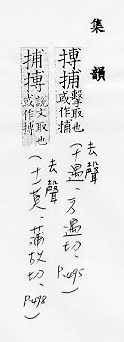 集韻
搏捕擊取也或作捕
去聲（十遇、方遇切、P.495）
捕搏說文取也或作搏
去聲（十一莫、蒲故切、P.498）